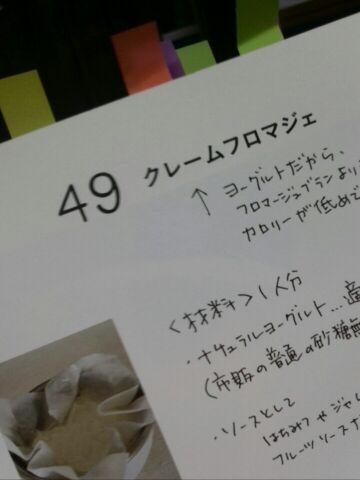 49 クレームフロマジェ
↑ ヨーグルトだから、
フロマージュブランより
カロリーが低めで
<材料>1人分
・ナチュラルヨーグルト…適
(市販の普通の砂糖無
・ソースとして
はちみつやジャム
フルーツソースナ